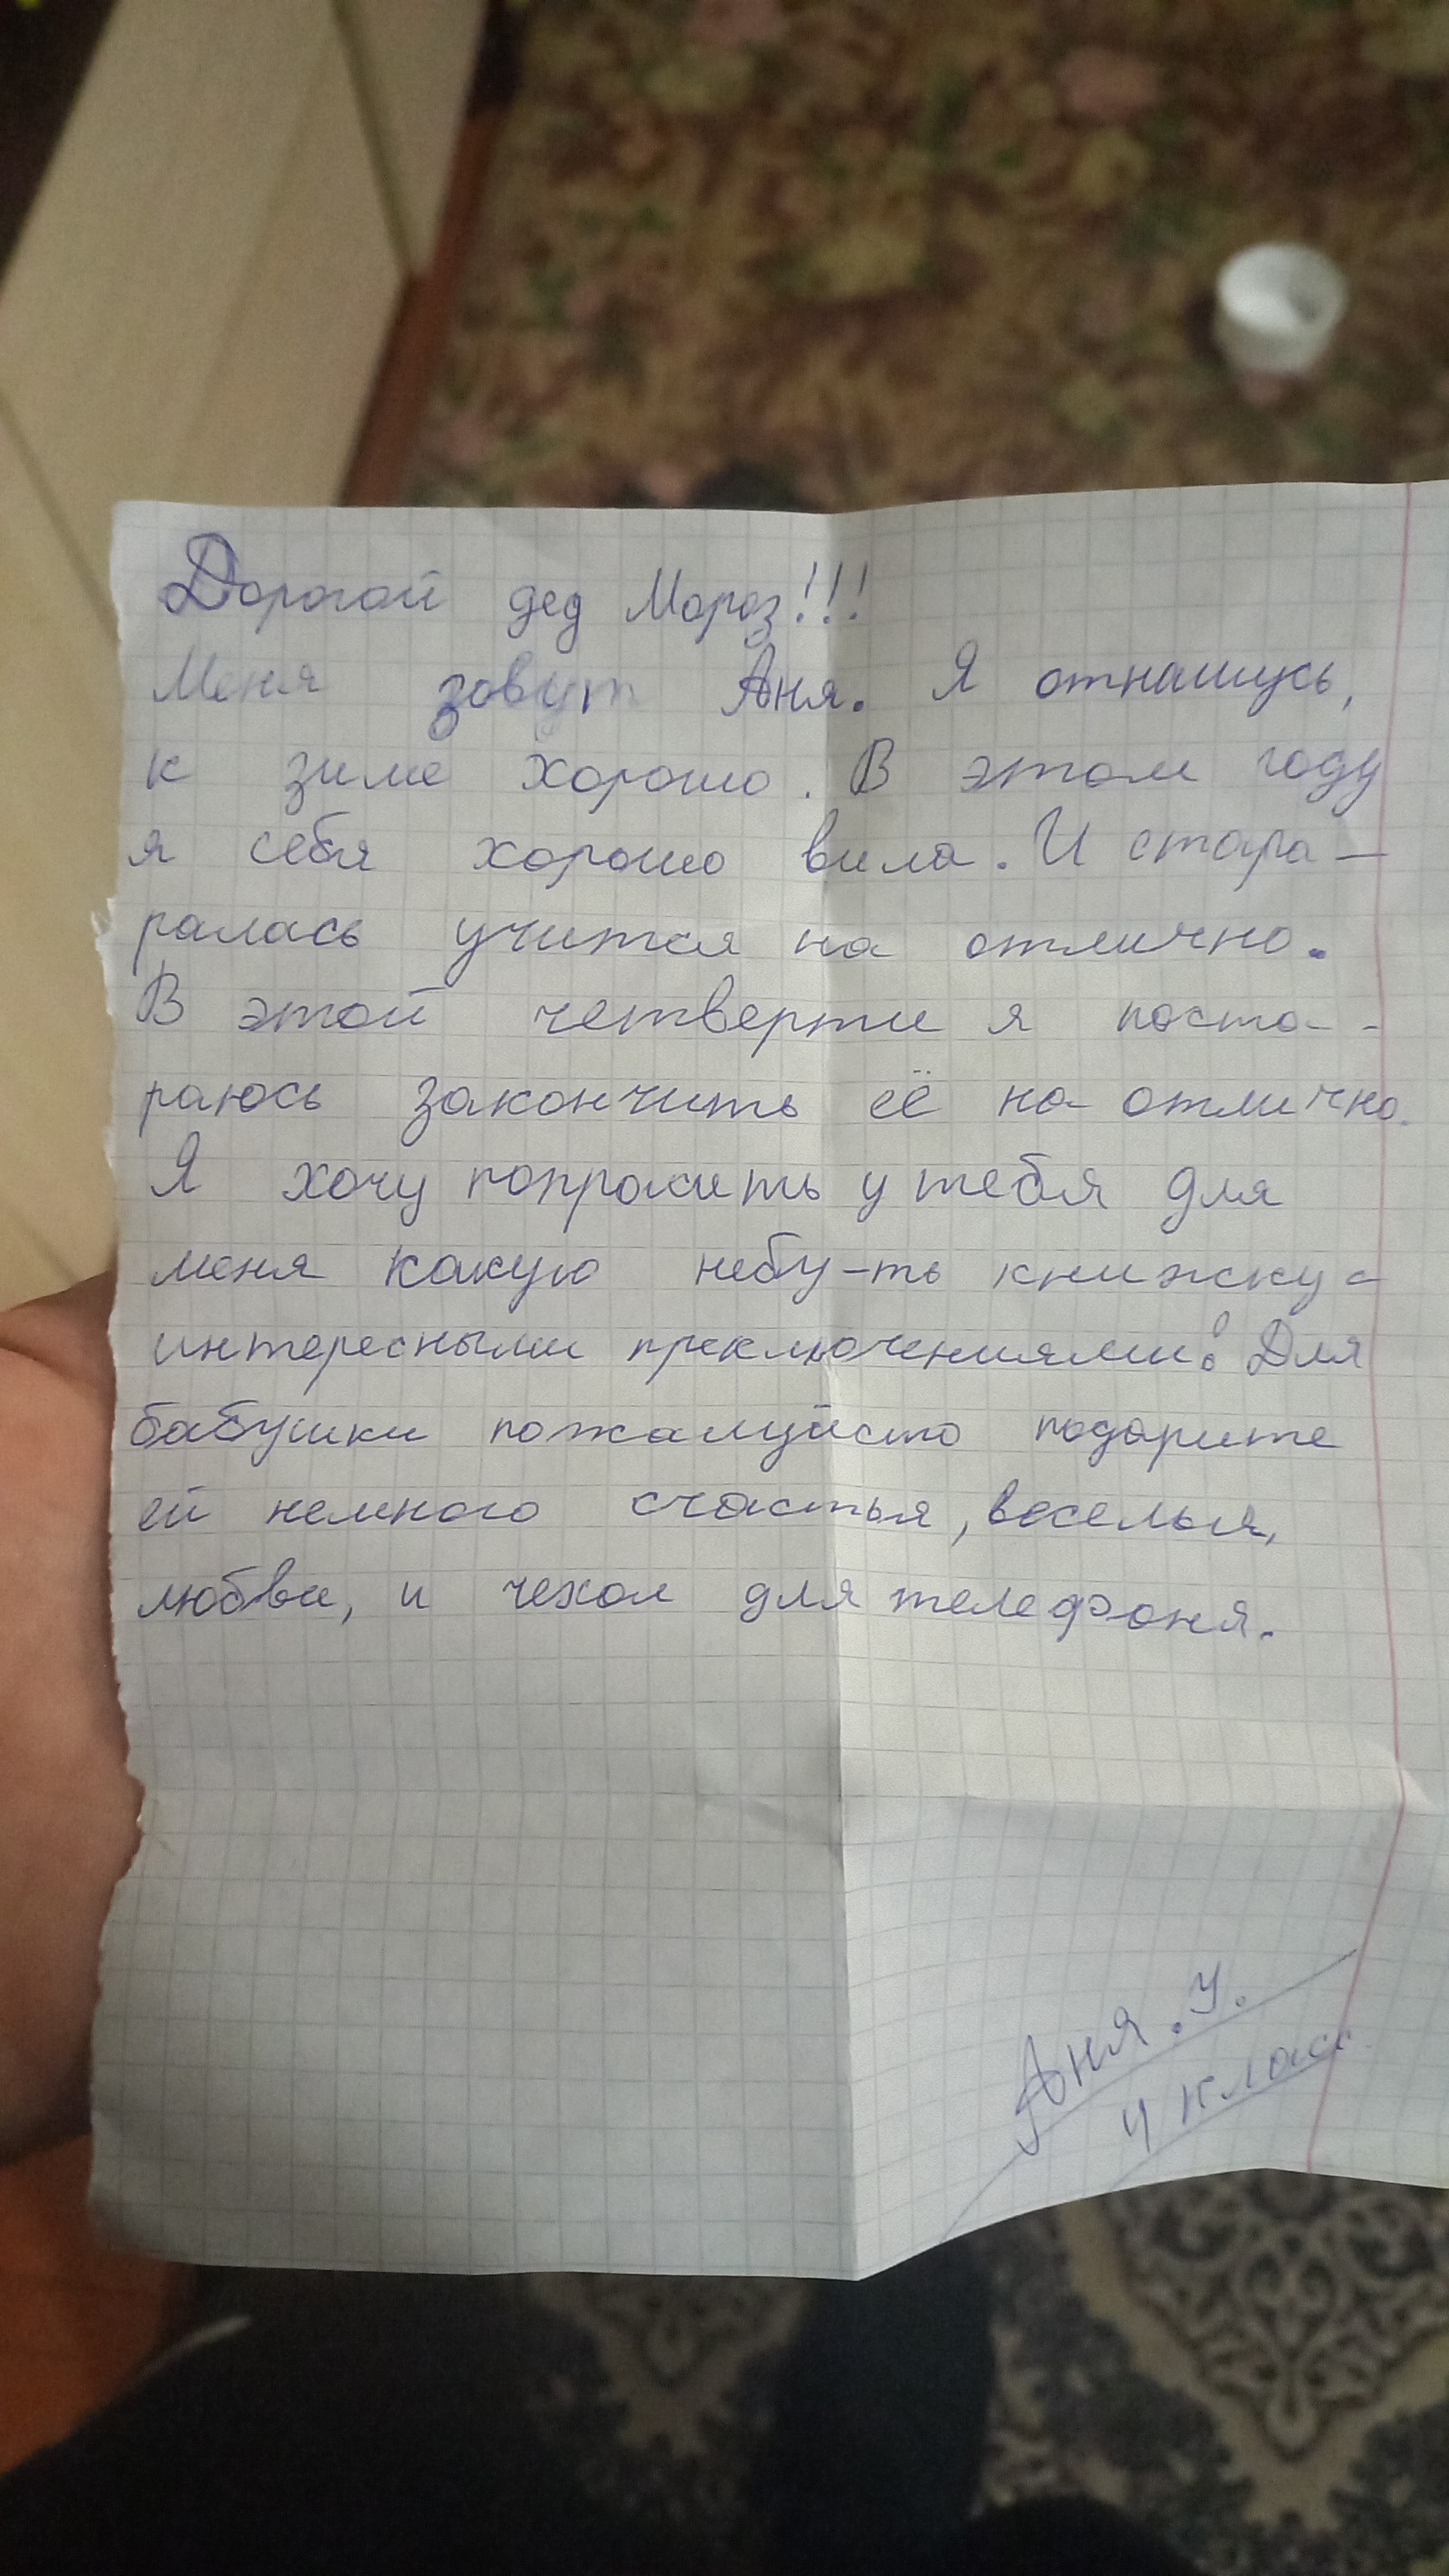 Дорогой дед Мороз!!!
Меня зовут Аня. Я отнашусь,
к зиме хорошо. В этом году
я себя хорошо вила. И стара-
ралась учится на отлично.
В этой четверти я поста-
раюсь закончить её на отлично.
Я хочу попросить у тебя для
меня какую небу-ть книжку с
интересными преключениями. Для
бабушки пожалуйсто подарите
ей немного счастья, веселья,
любви, и чехол для телефоня.
Аня.У.
4 класс